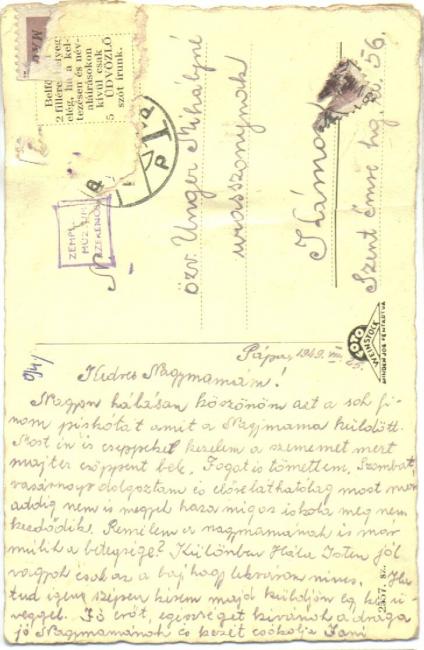 Belföldön
2 filléres bélyeg
elég, ha a kel-
tezésen és név-
aláírásokon
kívül csak
ÜDVÖZLŐ
5 szót írunk.
ZEMPL
MUZ
SZERENCS
özv. Unger Mihályné
urasszonynak
Szent Imre hg. u. 56.
FOTO
WEINSTOCK
MINDEN JOG FENTARTVA
2357. sz.
Pápa, 1949. VIII. 25.
Kedves Nagymamám!
Nagyon hálásan köszönöm azt a sok fi-
nom piskótát amit a Nagymama küldött.
Most én is cseppeket kezelem a szememet mert
majter csöppent bele. Fogat is tömettem, Szombat,
vasárnap dolgoztam és előreláthatólag most már
addig nem is megyek haza mígos iskola meg nem
kezdődik. Remélem a nagymamának is már
múlik a betegsége? Különben Hála Isten jól
vagyok csak az a baj hogy lekvárom nincs. Ha
tud igen szépen kérem majd küldjön egy kis ü-
veggel. Jó erőt, egészséget kívánok a drága
jó Nagymamának és kezét csókolja Jani